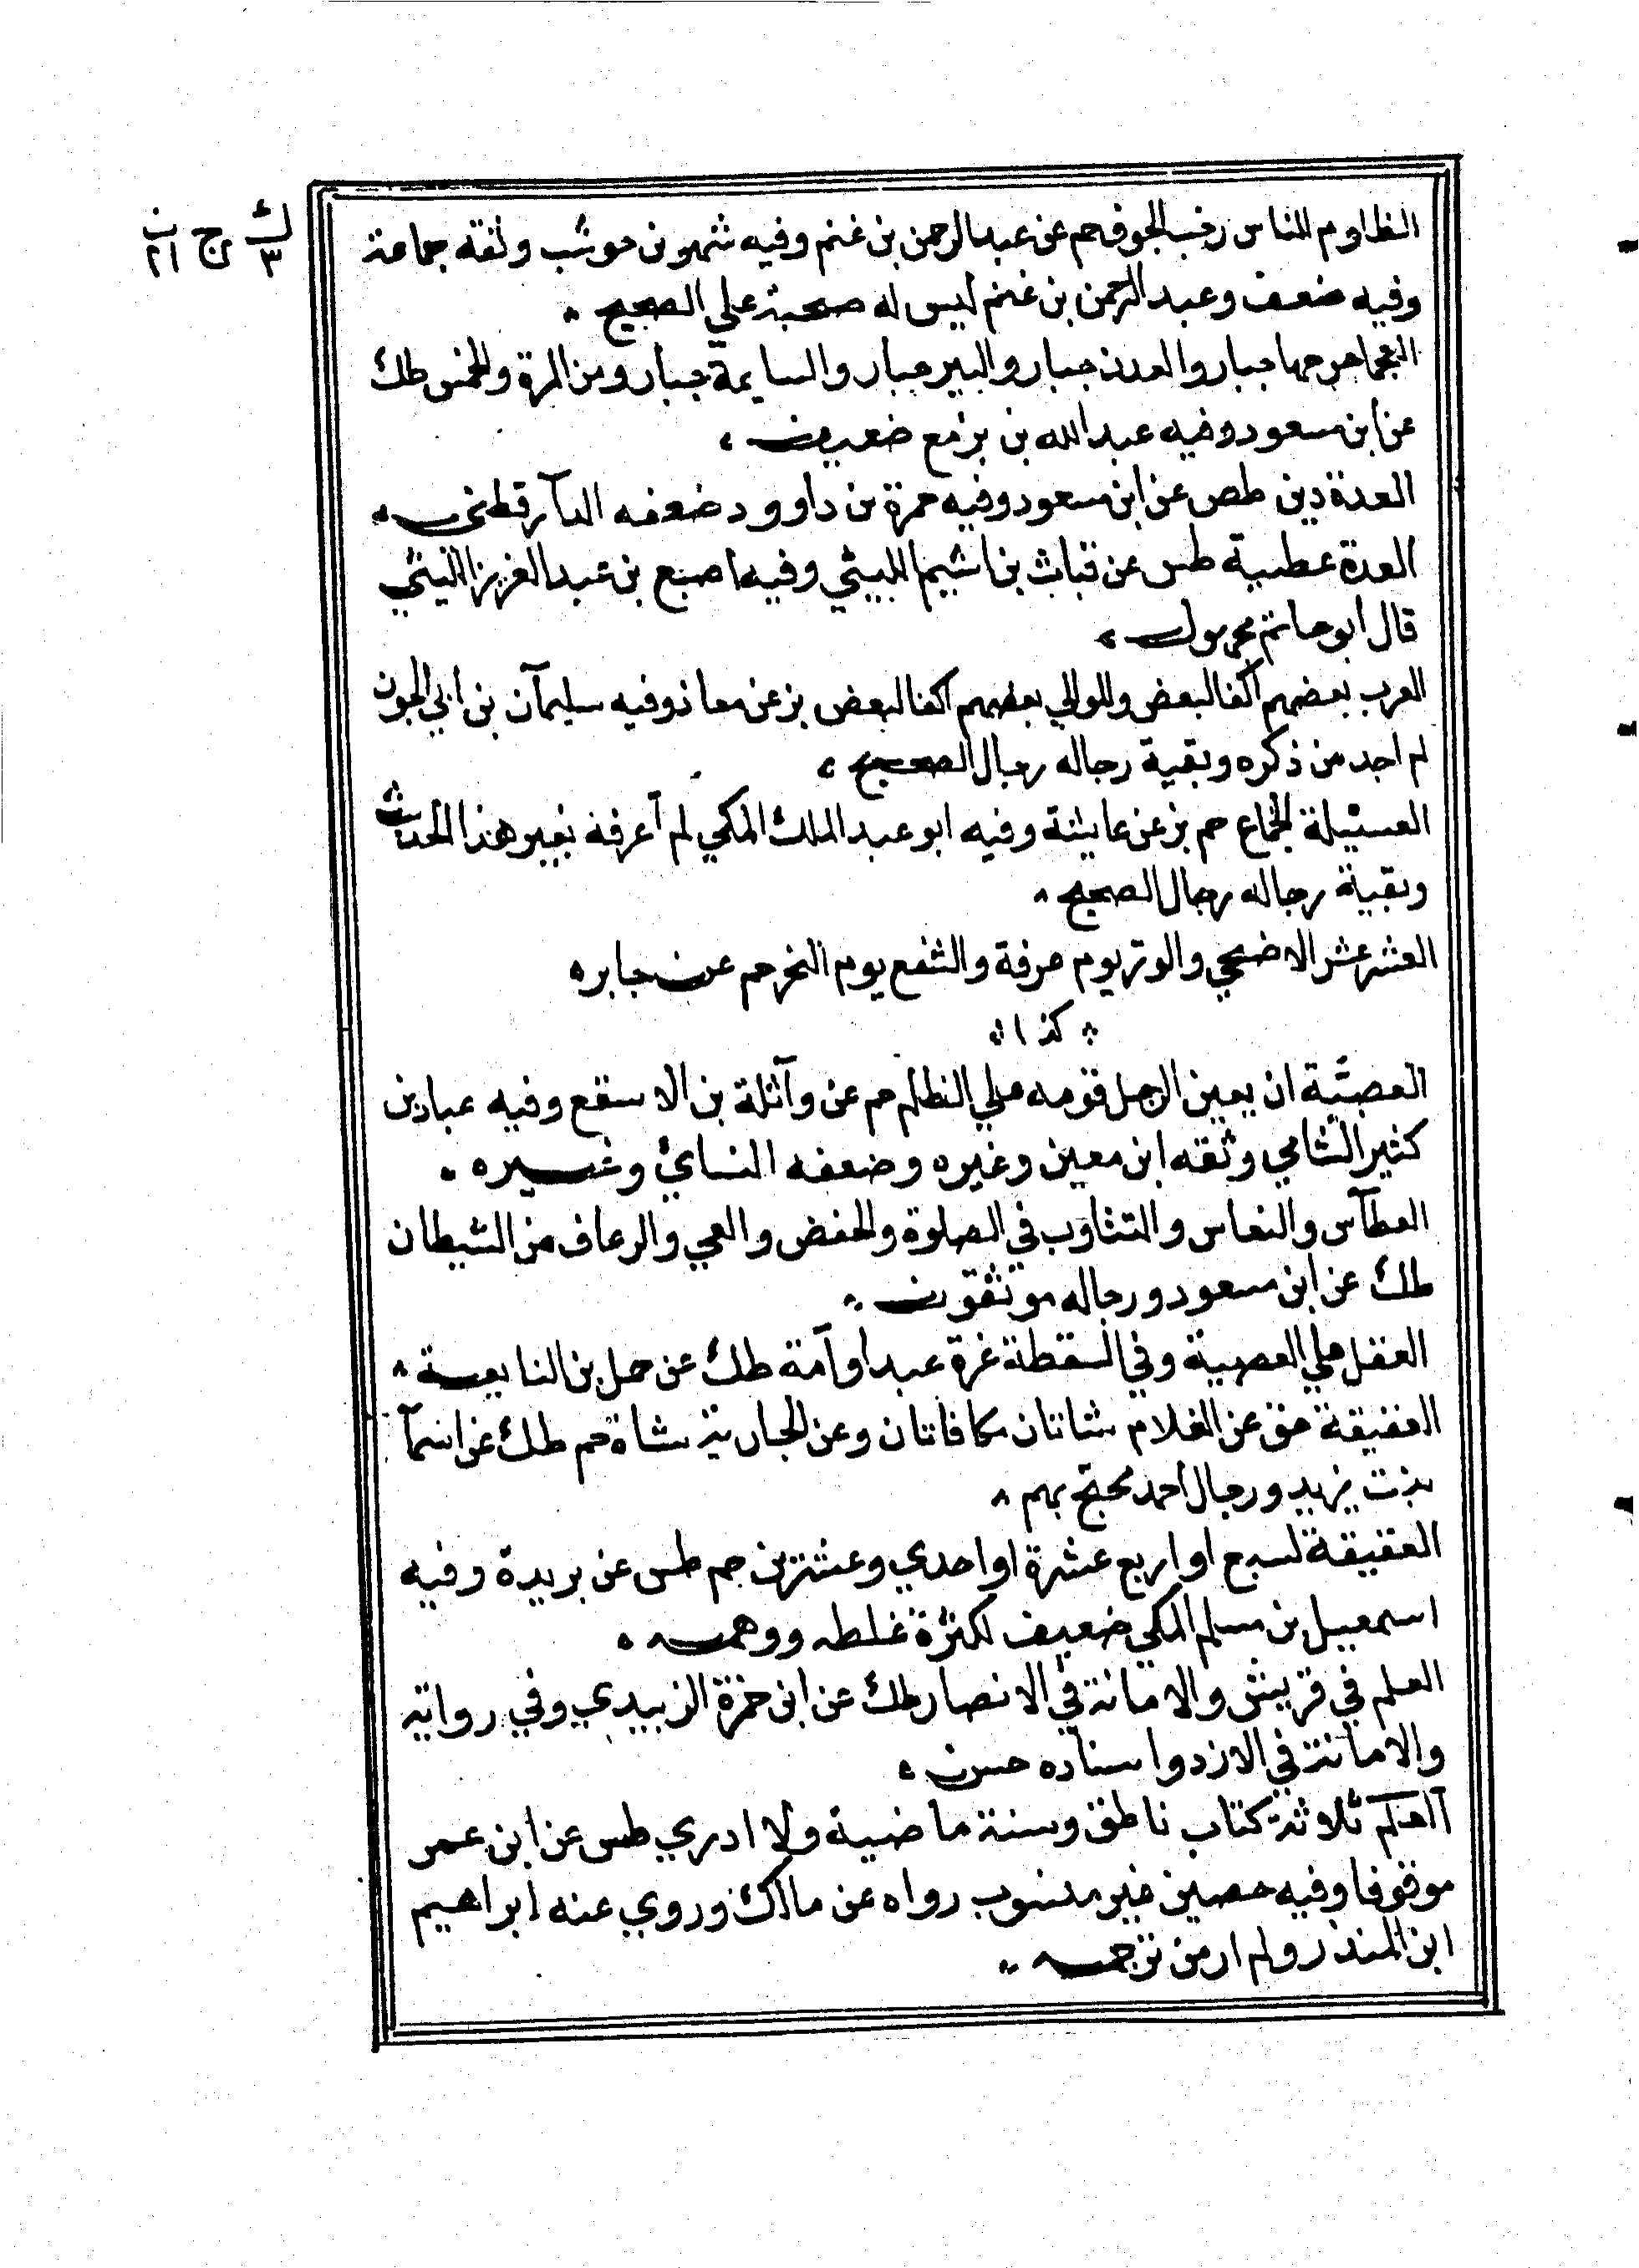 الظلوم للناس رحب الجوف حم عن عبد الرحمن بن غنم وفيه شهر بن حوشب وثقه جماعة
وفيه ضعف وعبد الرحمن بن غنم ليس له صحبة علي الصحيح
العجما جرحها جبار والمعدن جبار والبير جبار والسايمة جبار وفي الركاز الخمس طك
عن ابن مسعود وفيه عبد الله بن بزيع ضعيف
العدة دين طص عن ابن مسعود وفيه حمزة بن داوود ضعفه الدآرقطني
العدة عطية طس عن قباث بن اشيم الليثي وفيه اصبع بن عبد العزيز الليثي
قال ابو حاتم مجهول
العرب بعضهم اكفا لبعض والموالي بعضهم اكفا لبعض بز عن معاذ وفيه سليمآن بن ابي الجون
لم اجد من ذكره وبقية رجاله رجال الصحيح
العسيلة الجماع حم بز عن عايشة وفيه ابو عبد الملك المكي لم آعرفه بغير هذا الحديث
وبقية رجاله رجال الصحيح
العشر عشر الاضحي والوتر يوم عرفة والشفع يوم النحر حم عن جابر
كذا
العصبية ان يعين الرجل قومه علي الظلم حم عن وآثلة بن الاسقع وفيه عباد بن
كثير الشامي وثقه ابن معين وغيره وضعفه النسائ وغيره
العطآس والنعاس والتثاوب في الصلوة والحيض والقي والرعاف من الشيطان
طك عن ابن مسعود ورجاله موثقون
العقل علي العصبة وفي السقطة غرة عبد او آمة طك عن حمل بن النابغة
العقيقة حق عن الغلام شاتان مكافاتان وعن الجارية شاة حم طك عن اسمآ
بنت يزيد ورجال احمد محتج بهم
العقيقة لسبع او اربع عشرة او احدي وعشرين حم طس عن بريدة وفيه
اسمعيل بن مسلم المكي ضعيف لكثرة غلطه ووهمه
العلم في قريش والامانة في الانصار طك عن ابن حمزة الزبيدي وفي رواية
والامانة في الازد واسناده حسن
آلعلم ثلاثة كتاب ناطق وسنة ماضية ولا ادري طس عن ابن عمر
موقوفا وفيه حصين غير منسوب رواه عن مالك وروي عنه ابراهيم
ابن المنذر ولم ار من ترجمه